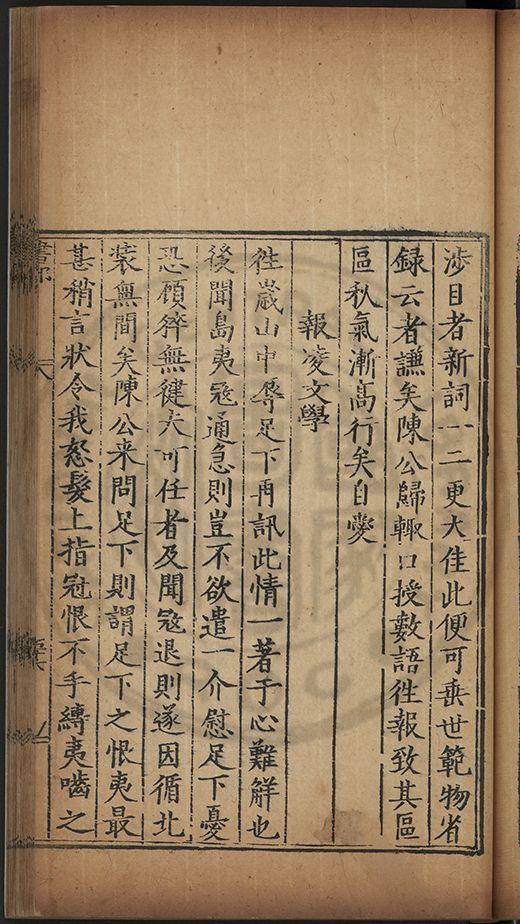 渉目者新詞一二更大佳此便可垂世範物省
録云者謙矣陳公歸輙口授數語徃報致其區
區秋氣漸髙行矣自愛
報凌文學
徃歲山中辱足下再訊此情一著于心難觧也
後聞島夷宼通急則豈不欲遣一介慰足下憂
恐顧獘無健夫可任者及聞宼退則遂因循北
裝無間矣陳公来問足下則謂足下之恨夷最
甚稍言狀令我怒髮上指冠恨不手縳夷嚙之